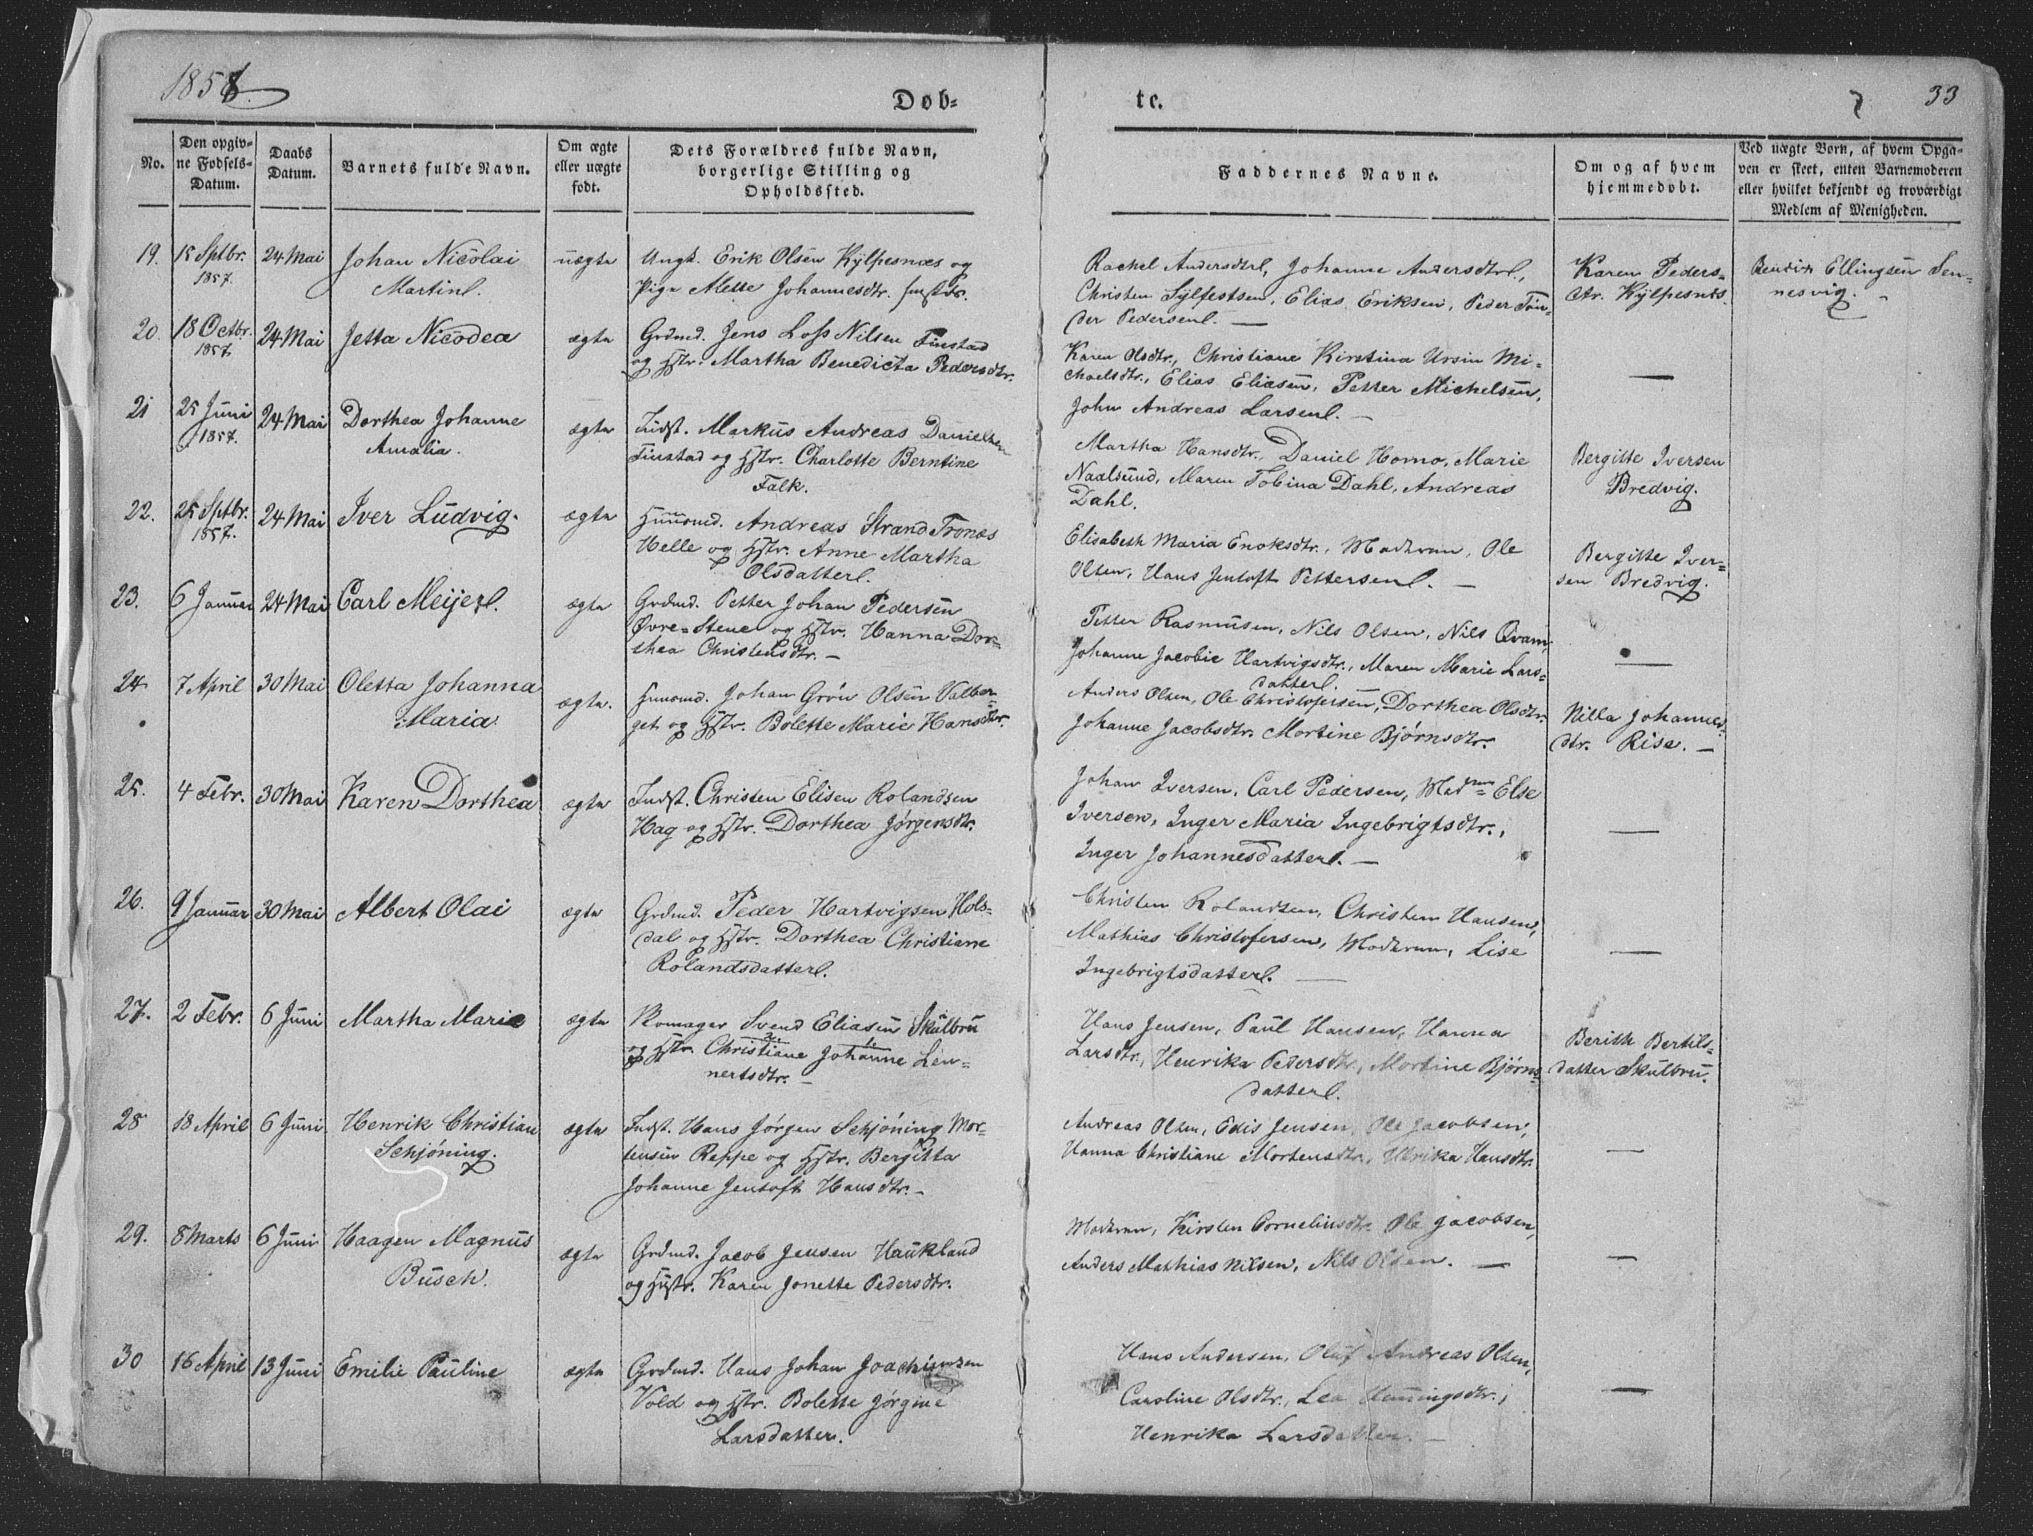 1858.
Døb-
te.
33
No.
Den opgiv-
ne Fødsels-
Datum.
Daabs
Datum.
Barnets fulde Navn.
Om ægte
eller uægte
født.
Dets Forældres fulde Navn,
borgerlige Stilling og
Opholdssted.
Faddernes Navne.
Om og af hvem
hjemmedøbt.
Ved uægte Børn, af hvem Opga-
ven er skeet, enten Barnemoderen
eller hvilket bekjendt og troværdigt
Medlem af Menigheden.
19. 15 Sptbr. 24 Mai Johan Nicolai uægte Ungk. Erik Olsen Kylpesnæs og
1857. Martin. Pige Mette Johannesdtr.
Rachel Andersdtr., Johanne Andersdtr.,
Christen Sylfestsen, Elias Eriksen, Peder Tøn-
der Pedersen. —
Karen Peders-
dtr. Kylpesnæs
Bendix Ellingsen Sen-
nesvig.
20. 18 Octbr. 24 Mai Jetta Nicodea ægte Grdmd. Jens Loss Nilsen Finstad
1857. og Hstr. Martha Benedicta Pedersdtr.
Karen Olsdtr., Christiane Kirstina Ursin Mi-
chaelsdtr., Elias Eliasen, Petter Michelsen,
John Andreas Larsen. —
—
21 25 Juni 24 Mai Dorthea Johanne ægte Indst. Markus Andreas Danielsen
1857. Amalia. Finstad og Hstr. Charlotte Berntine
Falk.
Martha Hansdtr., Daniel Homo, Marie
Naalsund, Maren Tobina Dahl, Andreas
Dahl.
Bergitte Iversen
Bredvig.
22. 25 Sptbr. 24 Mai Iver Ludvig. ægte Huusmd. Andreas Strand Tronæs
1857. Helle og Hstr. Anne Martha
Olsdatter.
Elisabeth Maria Enoksdtr., Moderen, Ole
Olsen, Hans Jentoft Pettersen. —
Bergitte Iver-
sen Bredvig.
23. 6 Januar 24 Mai Carl Meijer. ægte Grdmd. Petter Johan Pedersen
Øvre-Stene og Hstr. Hanna Dor-
thea Christensdtr. —
Petter Rasmusen, Nils Olsen, Nils Qvam,
Johanne Jacobie Hartvigsdtr., Maren Marie Lars-
datter.
—
24 7 April 30 Mai Oletta Johanna ægte. Huusmd. Johan Grøn Olsen Valber-
Maria get og Hstr. Bolette Marie Hansdtr.
Anders Olsen, Ole Christofersen, Dorthea Olsdtr.
Johanne Jacobsdtr. Mortine Bjørnsdtr.
Nilla Johannes-
dtr. Rise. —
25. 4 Febr. 30 Mai Karen Dorthea ægte Indst. Christen Elisen Rolandsen
Hag og Hstr. Dorthea Jørgensdtr.
Johan Iversen, Carl Pedersen, Madme Else
Iversen, Inger Maria Ingebrigtsdtr.,
Inger Johannesdatter. —
—
26. 9 Januar 30 Mai Albert Olai ægte Grdmd. Peder Hartvigsen Hols-
dal og Hstr. Dorthea Christiane
Rolandsdatter.
Christen Rolandsen, Christen Hansen,
Mathias Christofersen, Moderen, Lise
Ingebrigtsdatter. —
—
27. 2 Febr. 6 Juni Martha Marie ægte Skomager Svend Eliasen Skulbru
og Hstr. Christiane Johanne Len-
nertsdtr. —
Hans Jensen, Paul Hansen, Hanna
Larsdtr., Henrika Pedersdtr, Mortine Bjørns-
datter.
Berith Bertils-
datter Skulbru.
28 18 April 6 Juni Henrik Christian ægte Indst. Hans Jørgen Schjøning Mor-
Schjøning. tensen Reppe og Hstr. Bergitta
Johanne Jentoft Hansdtr. —
Andreas Olsen, Edis Jensen, Ole Jacobsen,
Hanna Christiane Mortensdtr., Ulrika Hansdtr.
—
29. 8 Marts 6 Juni Haagen Magnus ægte Grdmd. Jacob Jensen Haukland
Busch. og Hustr. Karen Jonette Pedersdtr.
Moderen, Kirsten Corneliusdtr. Ole Jacobsen,
Anders Mathias Nilsen, Nils Olsen. —
—
30 16 April 13 Juni Emilie Pauline ægte Grdmd. Hans Johan Joachimsen
Vold og Hstr. Bolette Jørgine
Larsdatter.
Hans Andersen, Oluf Andreas Olsen,
Caroline Olsdtr., Lea Henningsdtr.,
Henrika Larsdatter. —
—